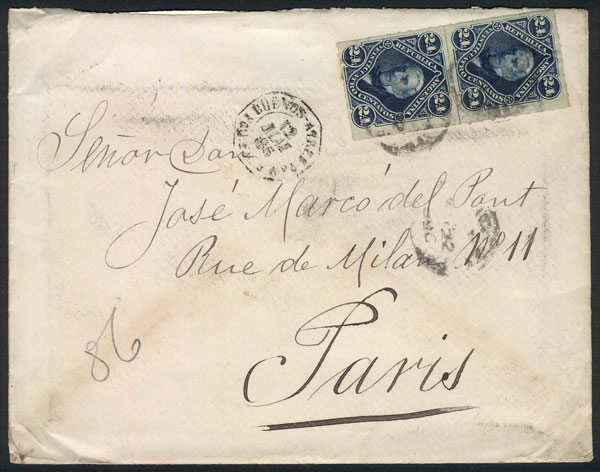 24 24
REPUBLICA ARGENTINA
VEINTICUATRO CENTAVOS
24 24
24 24
REPUBLICA ARGENTINA
VEINTICUATRO CENTAVOS
24 24
BUENOS AIRES
12
85
Señor Don
José Marcó del Pont
Rue de Milan Nº 11
Paris
86